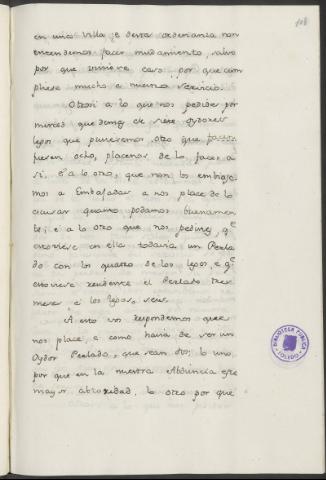 108
en una Villa; e desta ordenanza non
entendemos facer mudamiento, salvo
por que viniere caso por que cum
pliese mucho a nuestro servicio.
Otrosi a lo que nos pedides por
merced que demas de siete oydores
legos que pusieremos otro que
fuesen ocho, placenos de lo facer a
si. E a lo otro, que non los embiase
mos a Embajadas a nos place de lo
escusar quanto podamos buenamen
te; e a lo otro que nos pedides, q.e
estoviese en ella todavia un Perla
do con los quatro de los legos, e q.e
estoviese residente el Perlado tres
meses e los legos, seis.
A esto vos respondemos que
nos place, e como havia de ser un
Oydor Perlado, que sean dos, lo uno,
por que en la nuestra Abdiencia este
mayor abtoridad, lo otro por que
BIBLIOTECA PUBLICA
TOLEDO